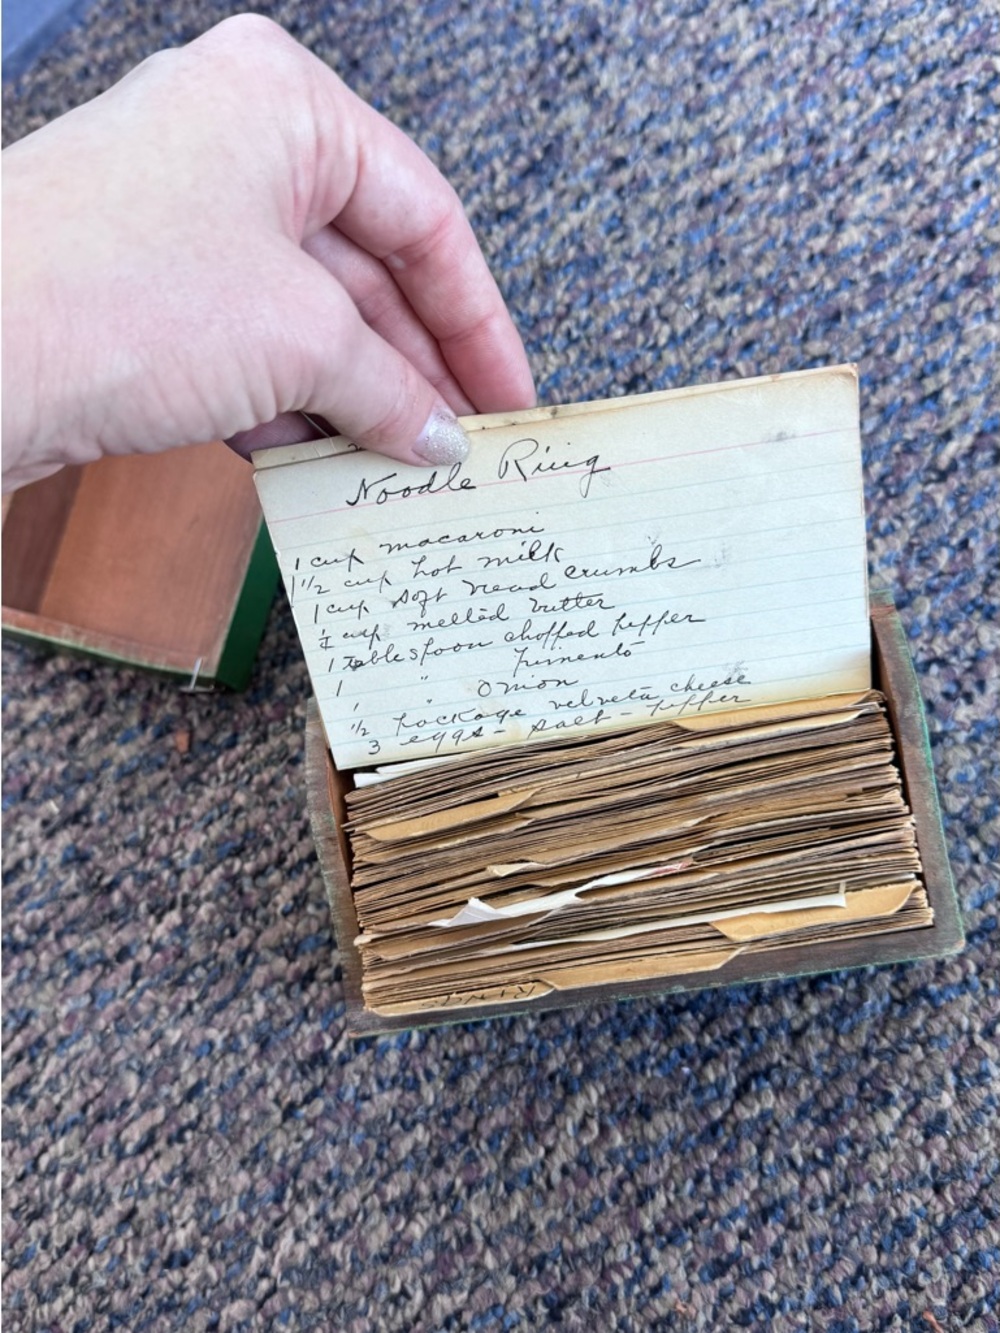 Noodle Ring
1 cup macaroni
1 1/2 cup hot milk
1 cup soft bread crumbs
cup melted butter
1 tablespoon chopped pepper
1 " pimento
1 " Onion
1/2 package velveta cheese
3 eggs - salt - pepper